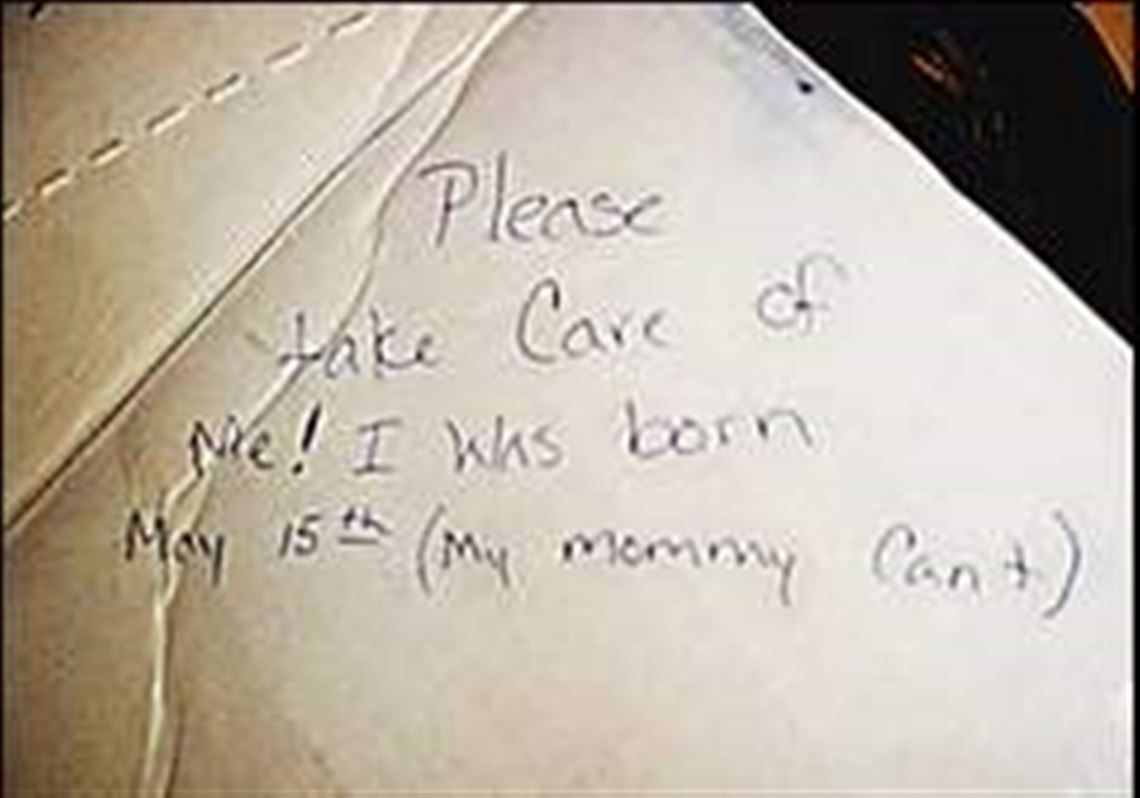 Please
take Care of
Me! I was born
May 15th (My mommy Can't)